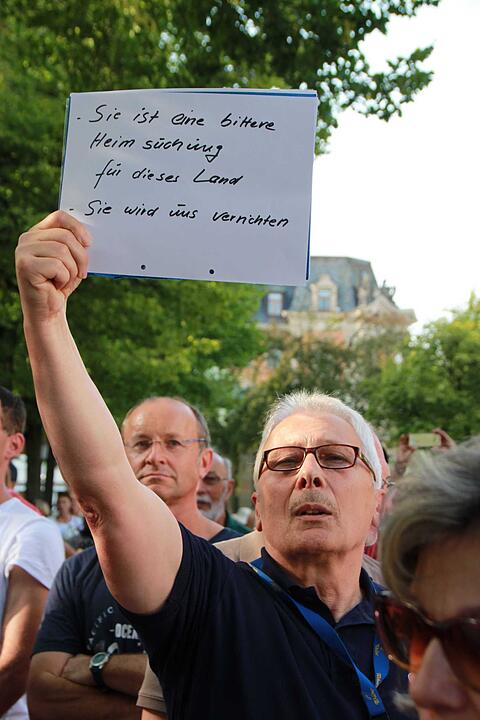 - Sie ist eine bittere
Heimsuchung
für dieses Land
- Sie wird uns vernichten
PACIFIC
OCEAN